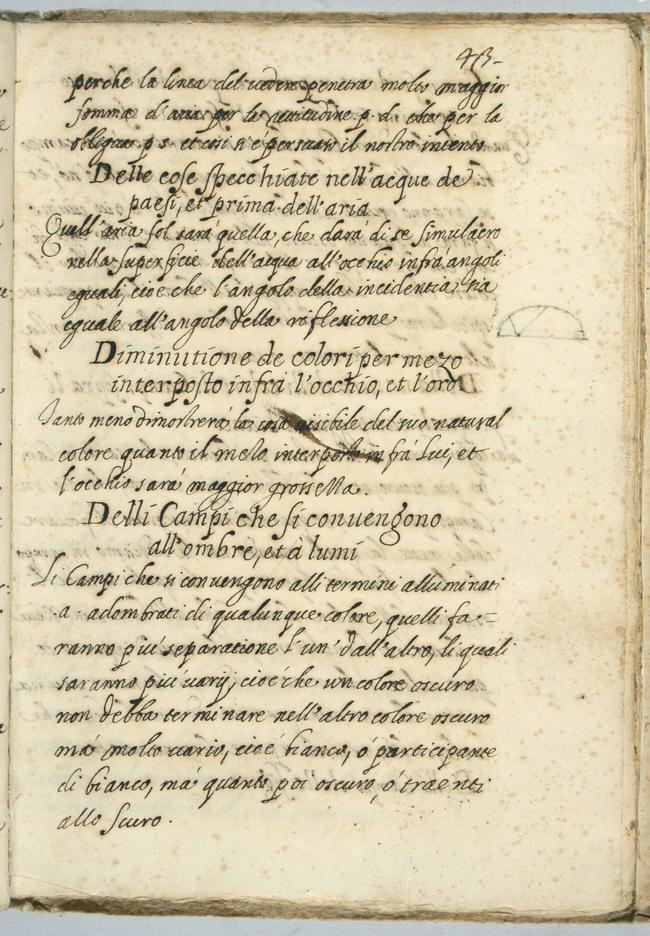 43-
perche la linea del vedere penetra molto maggior
somma d'aria per la rettitudine p. d. che per la
obliqua p s. et cosi si è persuaso il nostro intento
Delle cose specchiate nell'acque de
paesi, et prima dell'aria
Quell'aria sol sarà quella, che darà di se simulacro
nella superficie dell'acqua all'occhio infrà angoli
eguali, cioè che l'angolo della incidentia sia
eguale all'angolo della riflessione
Diminutione de colori per mezo
interposto infrà l'occhio, et l'oro
Tanto meno dimostrerà la cosa visibile del suo natural
colore quanto il mezo interposto infrà Lui, et
l'occhio sarà maggior grossezza.
Delli Campi che si convengono
all'ombre, et à lumi
Li Campi che si convengono alli termini alluminati
a. adombrati di qualunque colore, quelli fa=
ranno più separatione l'un' dall'altro, li quali
saranno più varij, cioè che un colore oscuro
non debba terminare nell'altro colore oscuro
mà molto vario, cioè bianco, ò participante
di bianco, mà quanto poi oscuro, ò traenti
allo scuro.